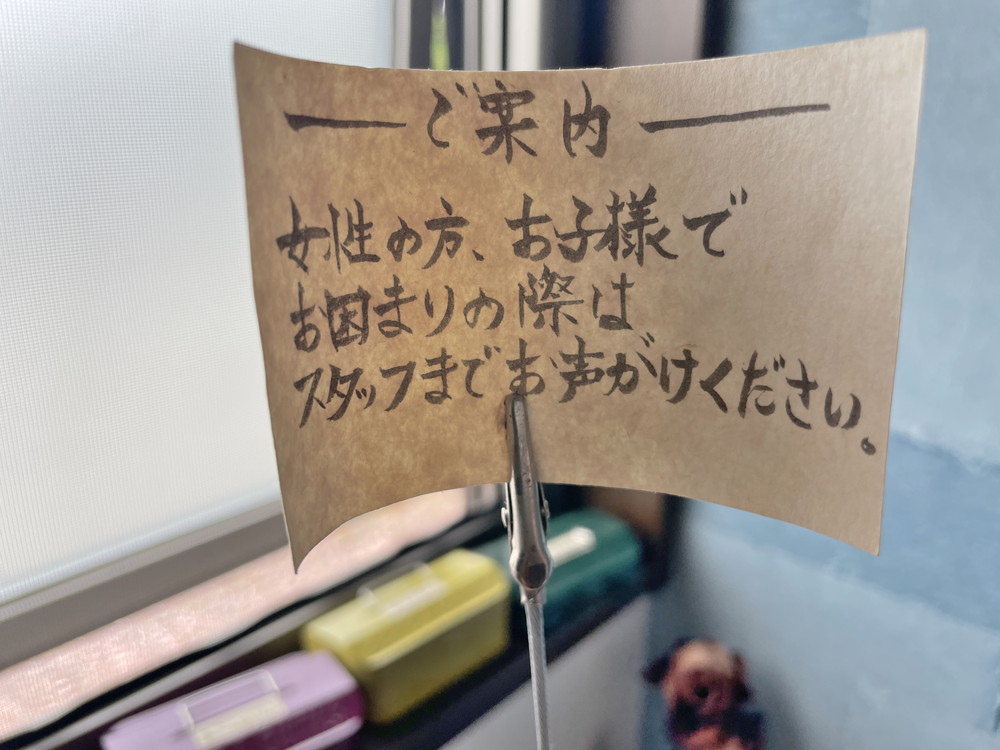 ご案内
女性の方、お子様で
お困まりの際は
スタッフまでお声がけください。